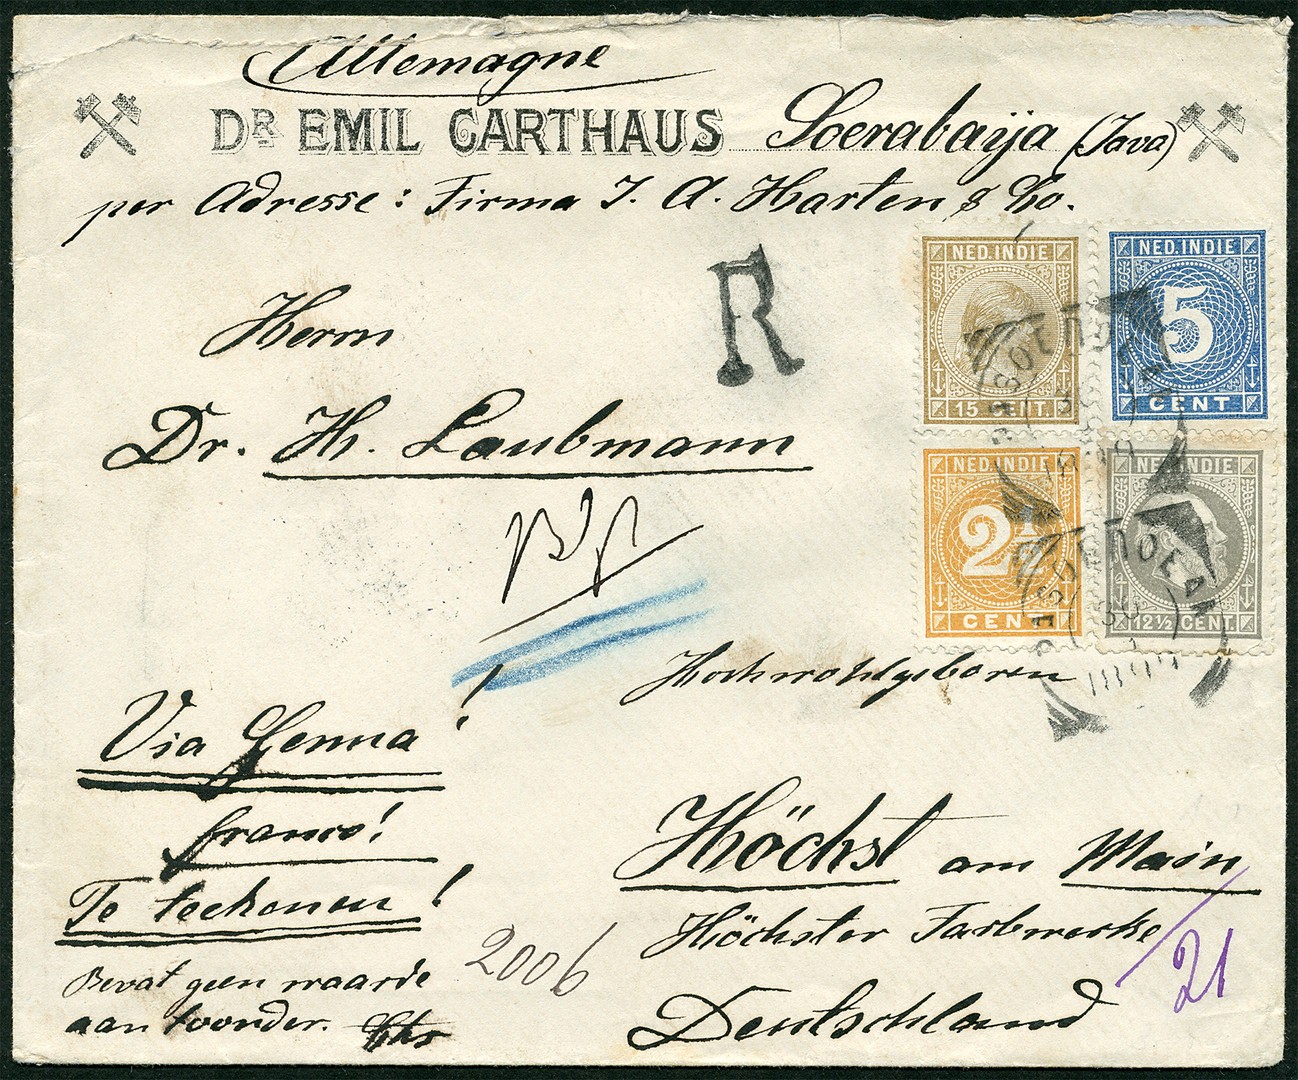 Allemagne
DR EMIL CARTHAUS Soerabaija (Java)
per Adresse: Firma J. A. Harten & Co.
R
NED. INDIE
15 CENT.
NED. INDIE
5
CENT
NED. INDIE
2½
CENT
NED. INDIE
12½ CENT.
Herrn
Dr. H. Laubmann
Hochwohlgeboren
Via Genua!
franco!
Te teekenen!
Bevat geen waarde
aan toonder.
2006
Höchst am Main
Höchster Farbwerke
Deutschland
21